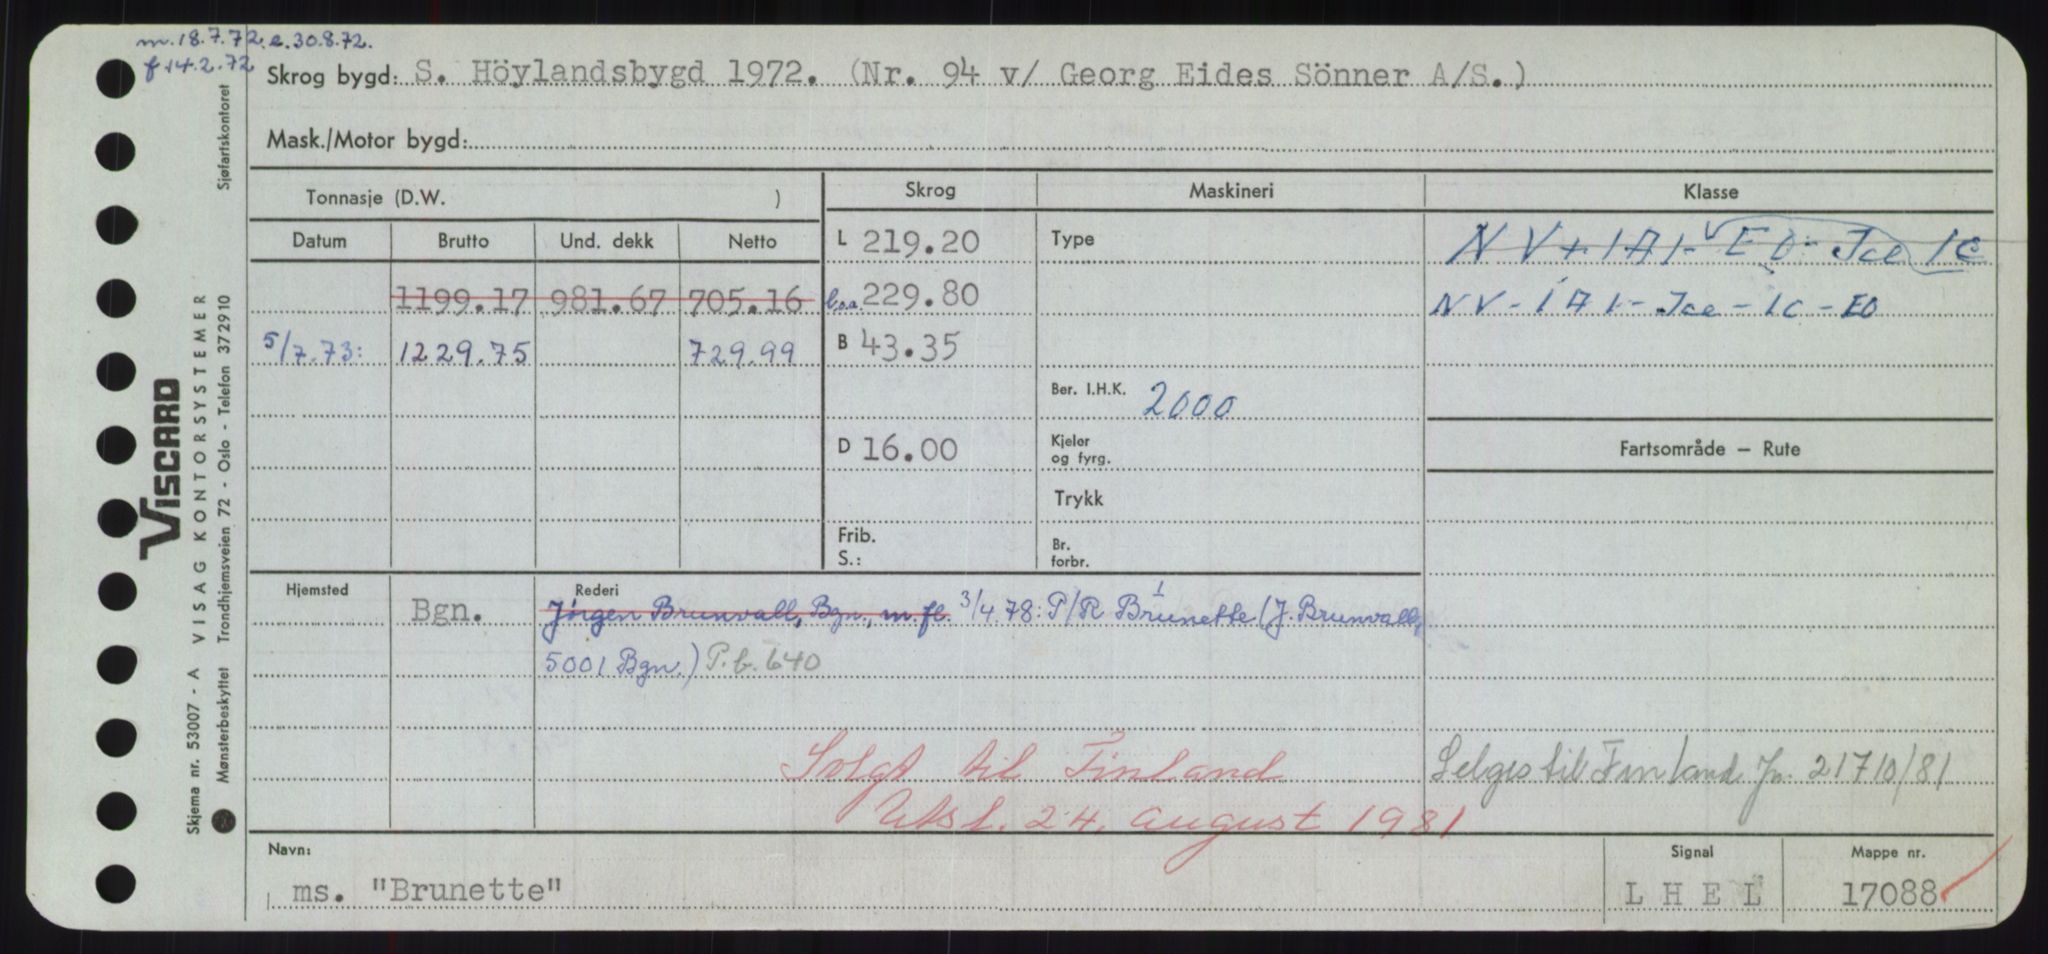 m. 18.7.72. e. 30.8.72.
f 14.2.72
Skrog bygd: S. Höylandsbygd 1972. (Nr. 94 v/ Georg Eides Sönner A/S.)
Mask./Motor bygd:
Tonnasje (D.W. )
Skrog Maskineri Klasse
Datum Brutto Und. dekk Netto
L 219.20 Type NV+1A1- EO- Ice 1C
1199.17 981.67 705.16 l.o.a. 229.80 NV-1A1-Ice-1C-EO
5/7.73: 1229.75 729.99 B 43.35
Ber. I.H.K. 2000
D 16.00 Kjeler og fyrg. Fartsområde – Rute
Trykk
Frib. S.: Br. forbr.
Hjemsted Rederi
Bgn. Jörgen Brunvall, Bgn., m.fl. 3/4.78: P/R Brunette (J. Brunvall,
5001 Bgn.) P.b. 640
Solgt til Finland Selges til Finland Jn. 21710/81
Utsl. 24. august 1981
Navn: Signal Mappe nr.
ms. "Brunette" L H E L 17088
VISCARD
Skjema nr. 53007 - A VISAG KONTORSYSTEMER
Mønsterbeskyttet Trondhjemsveien 72 - Oslo - Telefon 372910 Sjøfartskontoret